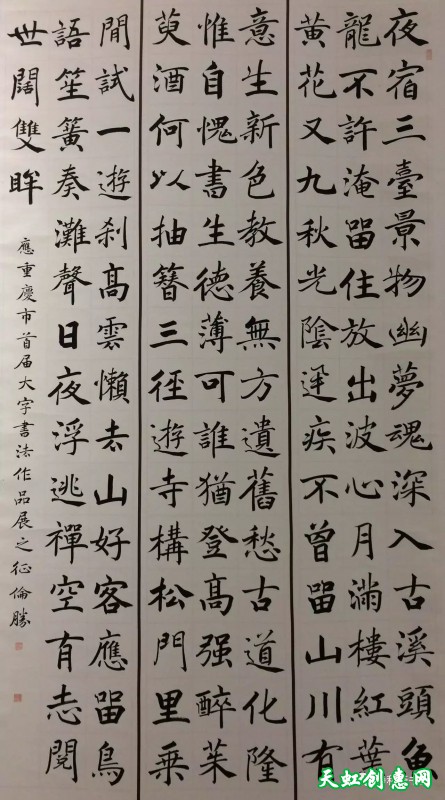 夜宿三臺景物幽夢魂深入古溪頭魚
龍不許淹畱住放出波心月滿樓紅葉
黃花又九秋光陰迅疾不曾畱山川有
意生新色教養無方遺舊愁古道化隆
惟自愧書生德薄可誰猶登高强醉茱
萸酒何以抽簪三徑遊寺構松門里乗
閒試一遊刹高雲懶去山好客應畱鳥
語笙簧奏灘聲日夜浮逃禪空有志閱
世闊雙眸
應重慶市首届大字書法作品展之征倫勝
天虹创惠网